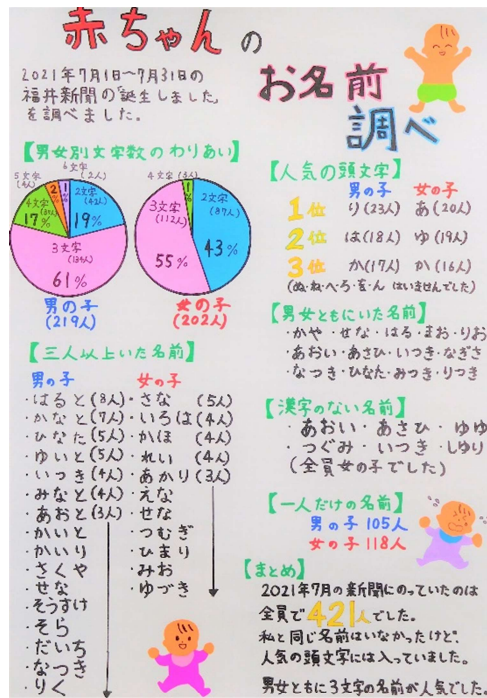 赤ちゃんの
お名前
調べ
2021年7月1日～7月31日の
福井新聞の「誕生しました」
を調べました。
【男女別文字数のわりあい】
6文字
(2人)
5文字
(4人)
4文字
17%
2
1%
2文字
(42人)
19%
3文字
(134人)
61%
男の子
(219人)
4文字(3人)
1%
2文字
(87人)
43%
3文字
(112人)
55%
女の子
(202人)
【人気の頭文字】
男の子 女の子
1位 り(23人) あ(20人)
2位 は(18人) ゆ(19人)
3位 か(17人) か(16人)
【男女ともにいた名前】
・かや・せな・はる・まお・りお
・あおい・あさひ・いつき・なぎさ
・なつき・ひなた・みつき・りつき
【漢字のない名前】
・あおい・あさひ・ゆゆ
・つぐみ・いつき・しゆり
(全員女の子でした)
【一人だけの名前】
男の子 105人
女の子 118人
【三人以上いた名前】
男の子
・はると(8人)
・かなと(7人)
・ひなた(5人)
・ゆいと(5人)
・いっき(4人)
・みなと(4人)
・あおと(3人)
・かいと
・かいり
・さくや
・せな
・そうすけ
・そら
・だいち
・なつき
・りく
女の子
・さな (5人)
・いろは(4人)
・かほ (4人)
・れい (4人)
・あかり(3人)
・えな
・せな
・つむぎ
・ひまり
・みお
・ゆづき
【まとめ】
2021年7月の新聞にのっていたのは
全員で421人でした。
私と同じ名前はいなかったけど、
人気の頭文字には入っていました。
男女ともに3文字の名前が人気でした。